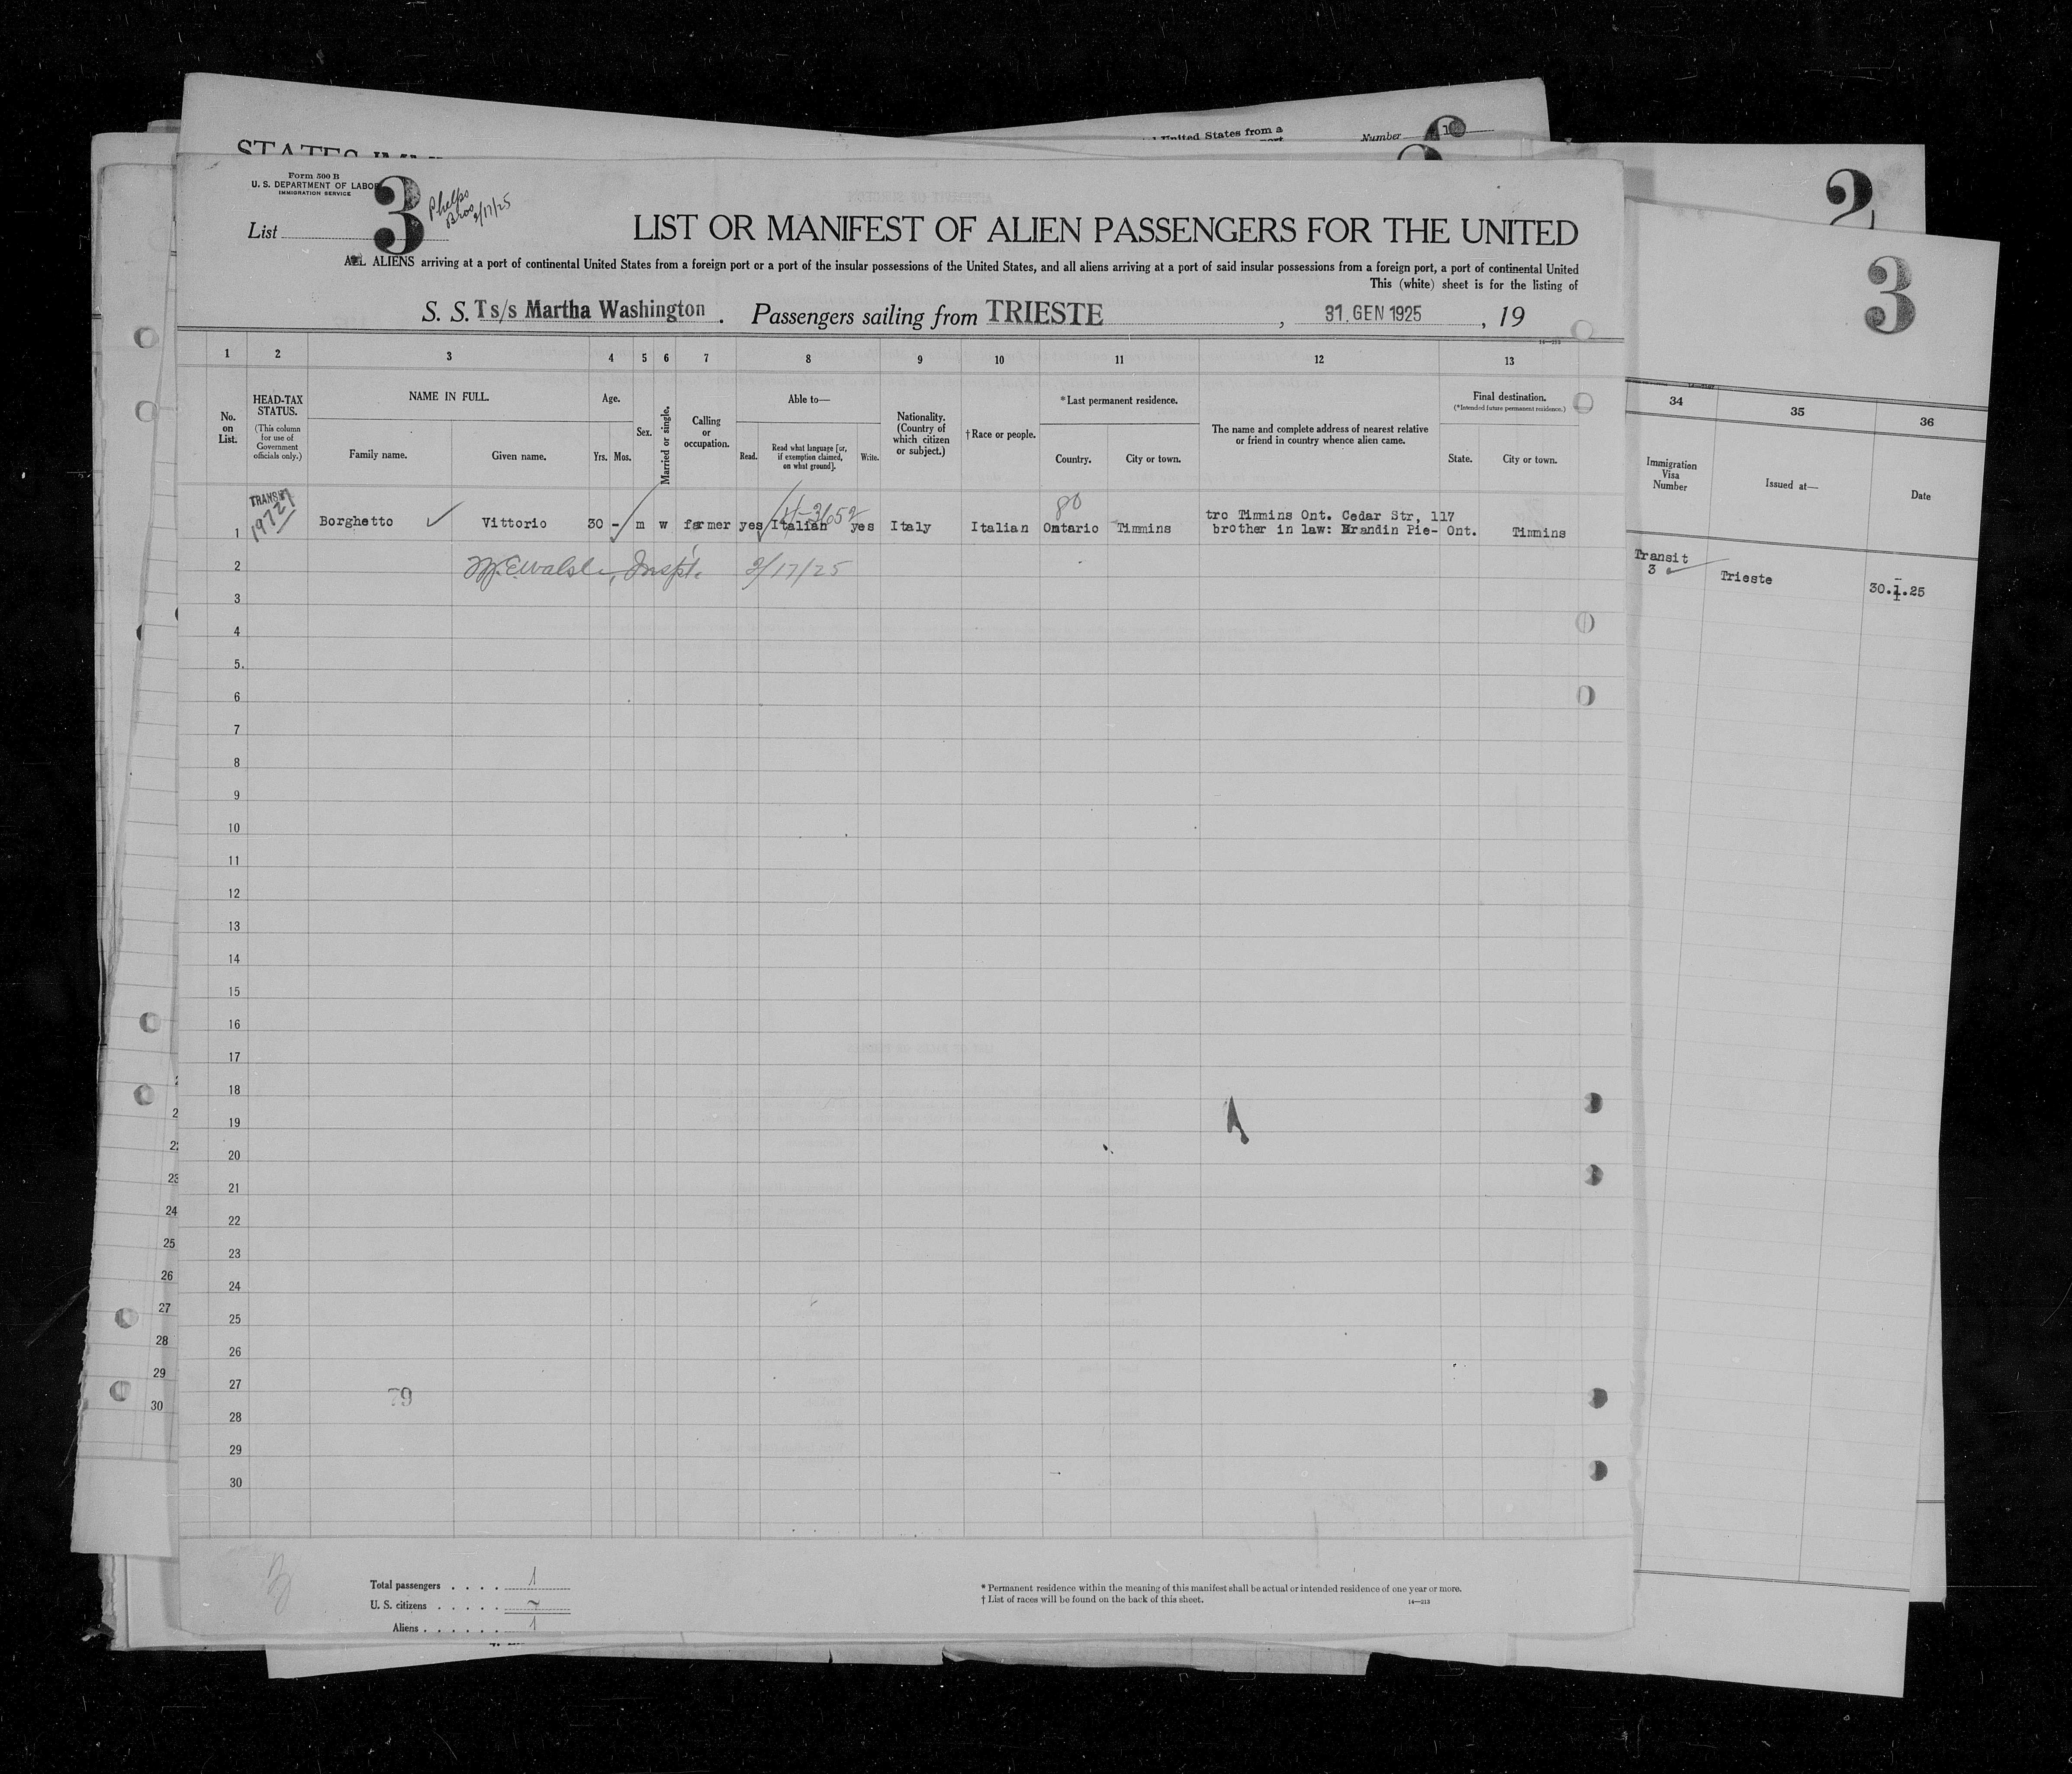 United States from a
Number
Form 500 B
U. S. DEPARTMENT OF LABOR
IMMIGRATION SERVICE
3
Phelps
Bros 2/17/25
List
LIST OR MANIFEST OF ALIEN PASSENGERS FOR THE UNITED
ALL ALIENS arriving at a port of continental United States from a foreign port or a port of the insular possessions of the United States, and all aliens arriving at a port of said insular possessions from a foreign port, a port of continental United
This (white) sheet is for the listing of
S. S. Ts/s Martha Washington . Passengers sailing from TRIESTE , 31. GEN 1925 , 19
1 2 3 4 5 6 7 8 9 10 11 12 13
No. on List.
HEAD-TAX STATUS.
(This column for use of Government officials only.)
NAME IN FULL.
Family name.
Given name.
Age.
Yrs. Mos.
Sex.
Married or single.
Calling or occupation.
Able to—
Read.
Read what language [or, if exemption claimed, on what ground].
Write.
Nationality. (Country of which citizen or subject.)
†Race or people.
*Last permanent residence.
Country.
City or town.
The name and complete address of nearest relative or friend in country whence alien came.
Final destination.
(*Intended future permanent residence.)
State.
City or town.
TRANSIT
80
tro Timmins Ont. Cedar Str, 117
1 Borghetto Vittorio 30 - m w farmer yes Italian yes Italy Italian Ontario Timmins brother in law: Brandin Pie- Ont. Timmins
2 Inspt. 2/17/25
3
4
5.
6
7
8
9
10
11
12
13
14
15
16
17
18
19
20
21
22
23
24
25
26
27
79
28
29
30
Total passengers . . . . 1
U. S. citizens . . . . . ~
Aliens . . . . . . 1
* Permanent residence within the meaning of this manifest shall be actual or intended residence of one year or more.
† List of races will be found on the back of this sheet.
14—213
2
3
34 35 36
Immigration Visa Number
Issued at—
Date
Transit
3 Trieste 30.1.25
23
24
25
26
27
28
29
30